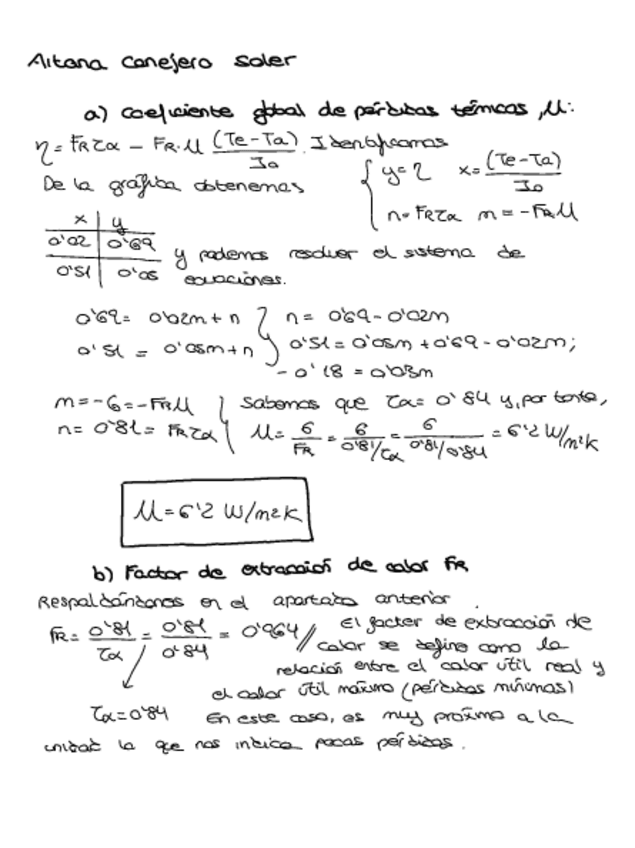 Aitana Conejero Soler
a) Coeficiente global de pérdidas térmicas, U:
η = FRτα - FR·U (Te-Ta)/Io. Identificamos
De la gráfica obtenemos { y=η x=(Te-Ta)/Io
n=FRτα m=-FRU
x | y
0'02 | 0'69
0'51 | 0'05
y podemos resolver el sistema de
ecuaciones.
0'69 = 0'02m + n } n = 0'69 - 0'02m
0'51 = 0'05m + n } 0'51 = 0'05m + 0'69 - 0'02m;
-0'18 = 0'03m
m = -6 = -FRU } Sabemos que τα = 0'84 y, por tanto,
n = 0'81 = FRτα } U = 6/FR = 6/(0'81/τα) = 6/(0'81/0'84) = 6'2 W/m²K
U = 6'2 W/m²K
b) Factor de extracción de calor FR
Respaldándonos en el apartado anterior.
FR = 0'81/τα = 0'81/0'84 = 0'964 // El factor de extracción de
calor se define como la
relación entre el calor útil real y
el calor útil máximo (pérdidas mínimas)
τα=0'84 En este caso, es muy próximo a la
unidad la que nos indica pocas pérdidas.